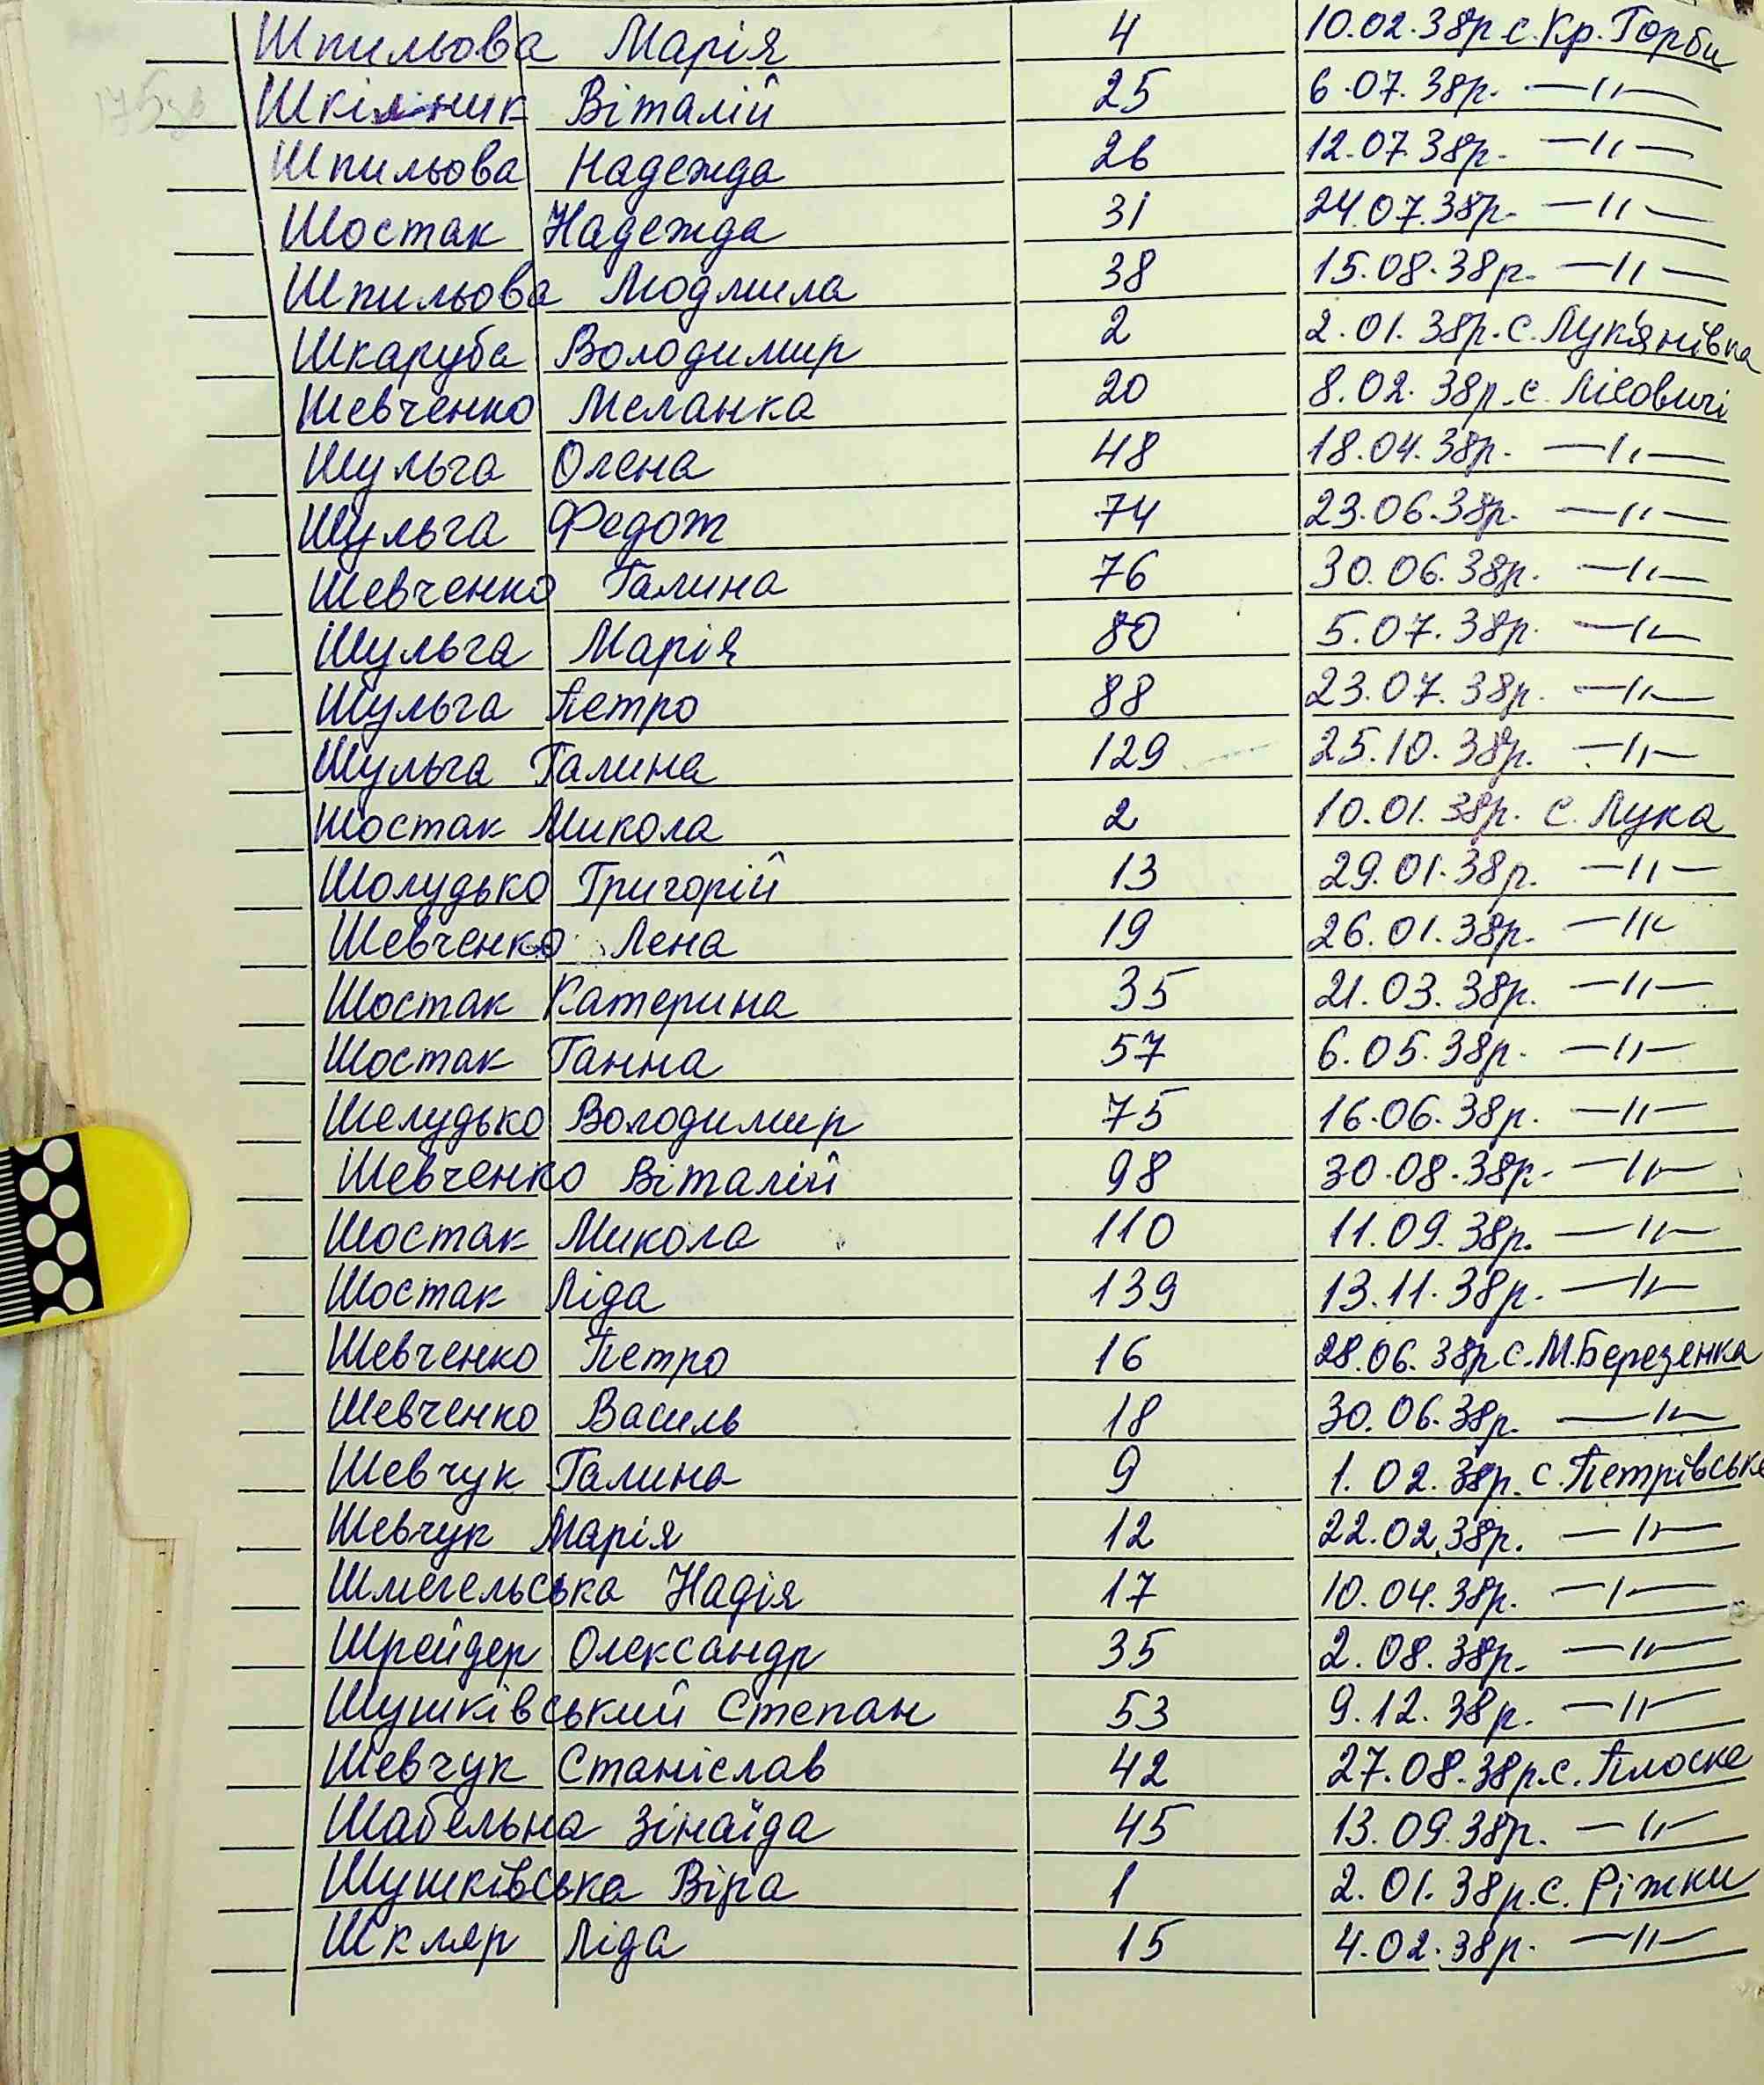 Шпильова Марія 4 10.02.38р с. Кр. Горби
Шкільник Віталій 25 6.07.38р. —"—
Шпильова Надежда 26 12.07.38р. —"—
Шостак Надежда 31 24.07.38р. —"—
Шпильова Людмила 38 15.08.38р. —"—
Шкаруба Володимир 2 2.01.38р. с. Лук'янівка
Шевченко Меланка 20 8.02.38р. с. Лісовичі
Шульга Олена 48 18.04.38р. —"—
Шульга Федот 74 23.06.38р. —"—
Шевченко Галина 76 30.06.38р. —"—
Шульга Марія 80 5.07.38р. —"—
Шульга Петро 88 23.07.38р. —"—
Шульга Галина 129 25.10.38р. —"—
Шостак Микола 2 10.01.38р. с. Лука
Шолудько Григорій 13 29.01.38р. —"—
Шевченко Лена 19 26.01.38р. —"—
Шостак Катерина 35 21.03.38р. —"—
Шостак Ганна 57 6.05.38р. —"—
Шелудько Володимир 75 16.06.38р. —"—
Шевченко Віталій 98 30.08.38р. —"—
Шостак Микола 110 11.09.38р. —"—
Шостак Ліда 139 13.11.38р. —"—
Шевченко Петро 16 28.06.38р с. М.Березянка
Шевченко Василь 18 30.06.38р. —"—
Шевчук Галина 9 1.02.38р. с. Петрівське
Шевчук Марія 12 22.02.38р. —"—
Шмегельська Надія 17 10.04.38р. —"—
Шрейдер Олександр 35 2.08.38р. —"—
Шушківський Степан 53 9.12.38р. —"—
Шевчук Станіслав 42 27.08.38р. с. Плоске
Шабельна Зінаїда 45 13.09.38р. —"—
Шушківська Віра 1 2.01.38р. с. Ріжки
Шкляр Ліда 15 4.02.38р. —"—